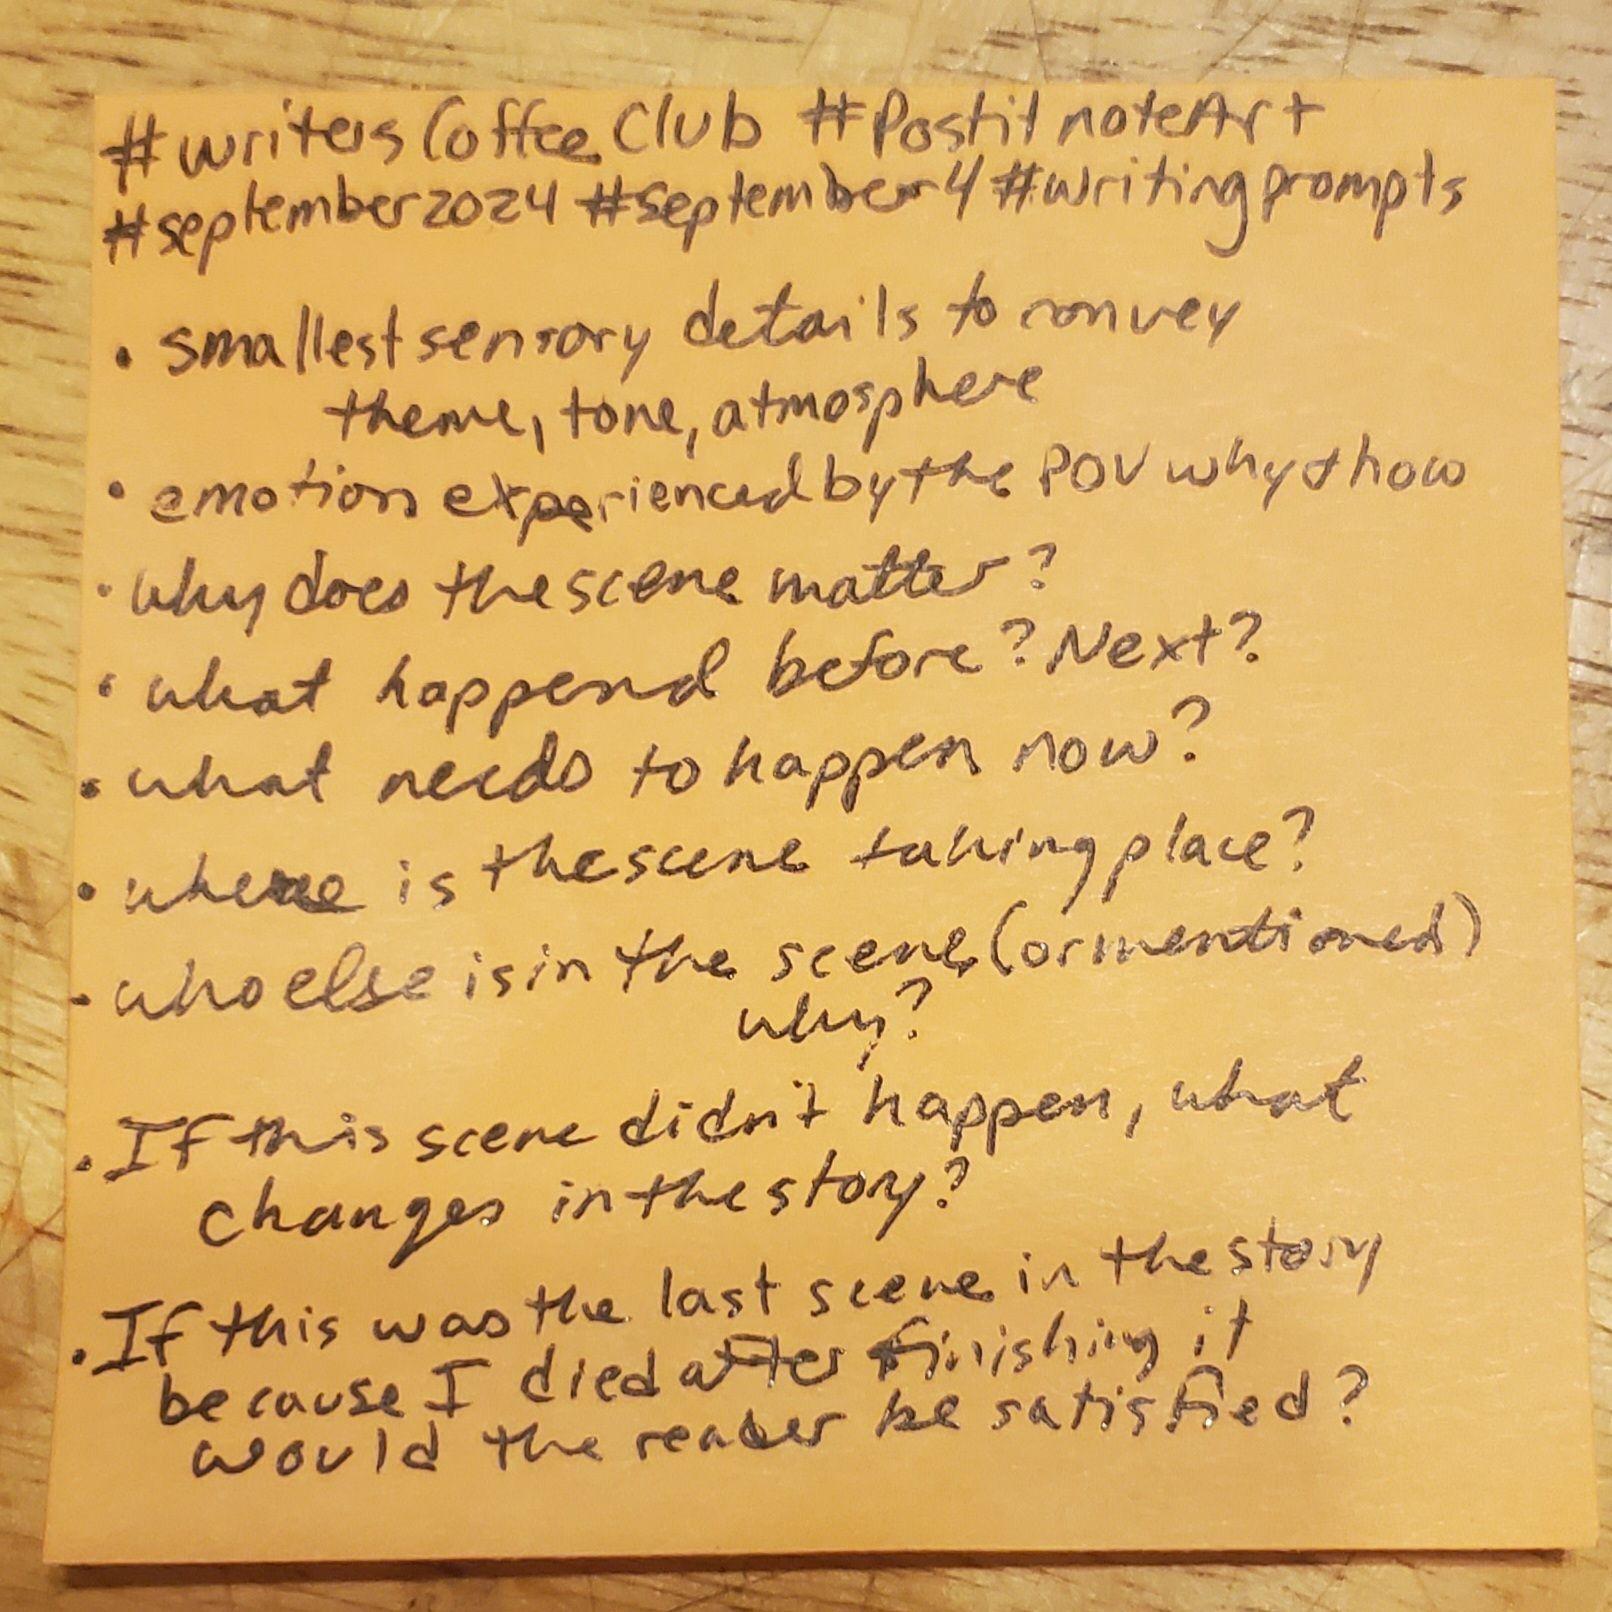 #writersCoffeeClub #PostitnoteArt
#september2024 #September4 #writingprompts
• smallest sensory details to convey
theme, tone, atmosphere
• emotion experienced by the POV why & how
• why does the scene matter?
• what happend before? Next?
• what needs to happen now?
• where is the scene taking place?
- who else is in the scene (or mentioned)
why?
• If this scene didn't happen, what
changes in the story?
• If this was the last scene in the story
because I died after finishing it
would the reader be satisfied?